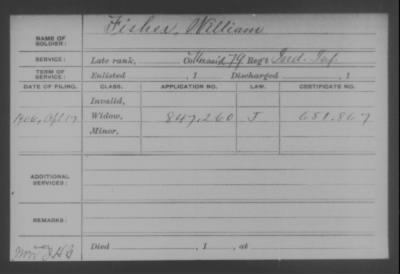 NAME OF SOLDIER: Fisher, William
SERVICE: Late rank, Co. 79 Reg't Ind. Inf.
TERM OF SERVICE: Enlisted , 1 Discharged , 1
DATE OF FILING. CLASS. APPLICATION NO. LAW. CERTIFICATE NO.
Invalid,
1906, Apl 17 Widow, 847,260 J 651,867
Minor,
ADDITIONAL SERVICES:
REMARKS:
Died , 1 , at